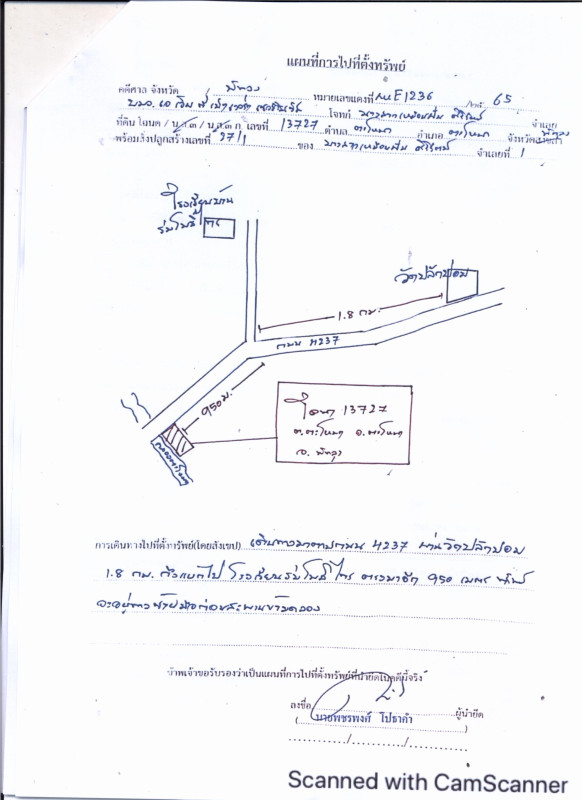 แผนที่การไปที่ตั้งทรัพย์
คดีศาล จังหวัด พัทลุง หมายเลขแดงที่ ผบE1236 / 65
โจทก์ จำเลย
ที่ดิน โฉนด / น.ส.3 / น.ส.๓ ก. เลขที่ 13727 ตำบล ตะโหมด อำเภอ ตะโหมด จังหวัด พัทลุง
พร้อมสิ่งปลูกสร้างเลขที่ 97/1 ของ จำเลยที่ 1
โรงเรียนบ้าน
ร่มโพธิ์ไทร
วัดปลักปอม
1.8 กม.
ถนน 4237
950 ม.
โฉนด 13727
ต.ตะโหมด อ.ตะโหมด
จ. พัทลุง
คลองตะโหมด
การเดินทางไปที่ตั้งทรัพย์(โดยสังเขป) เดินทางมาตามถนน 4237 ผ่านวัดปลักปอม
1.8 กม. ถึงแยกไป โรงเรียนร่มโพธิ์ไทร ตรงมาอีก 950 เมตร ทรัพย์
จะอยู่ทางซ้ายมือก่อนสะพานข้ามคลอง
ข้าพเจ้าขอรับรองว่าเป็นแผนที่การไปที่ตั้งทรัพย์ที่นำยึดในคดีนี้จริง
ลงชื่อ ผู้นำยึด
( นายพชรพงศ์ ไประคำ )
............/............/............
Scanned with CamScanner